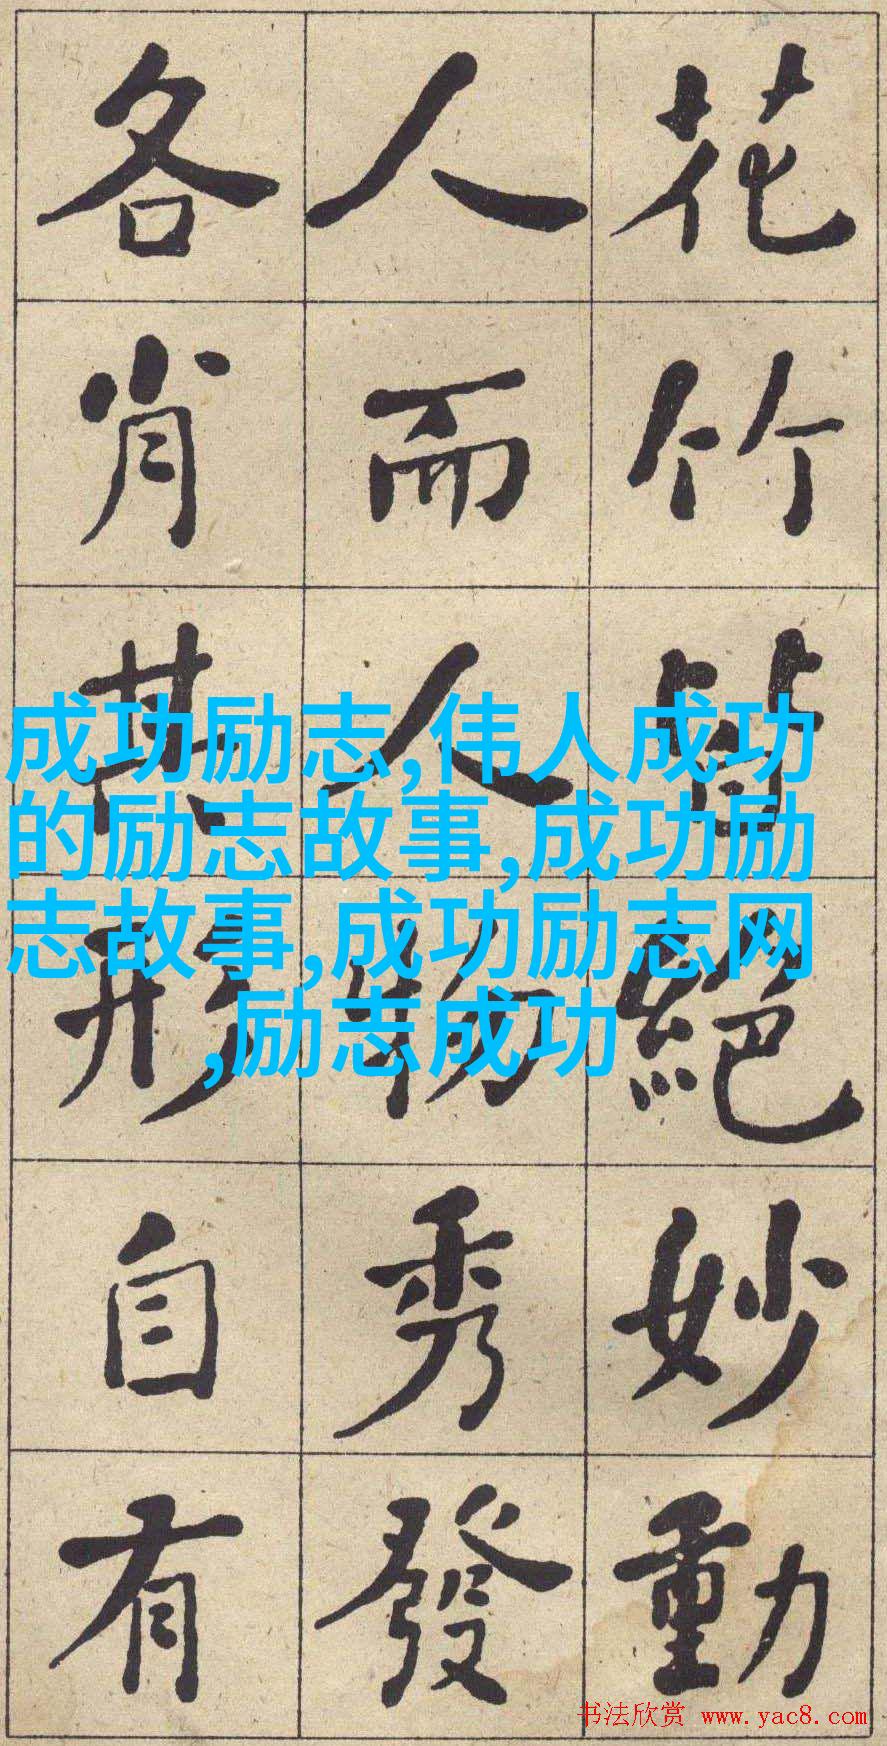 花竹皆絕妙動
人而人物秀發
各肖其形自有
成功励志,伟人成功
的励志故事,成功励
志故事,成功励志网
,励志成功
书法欣赏 www.yac8.com